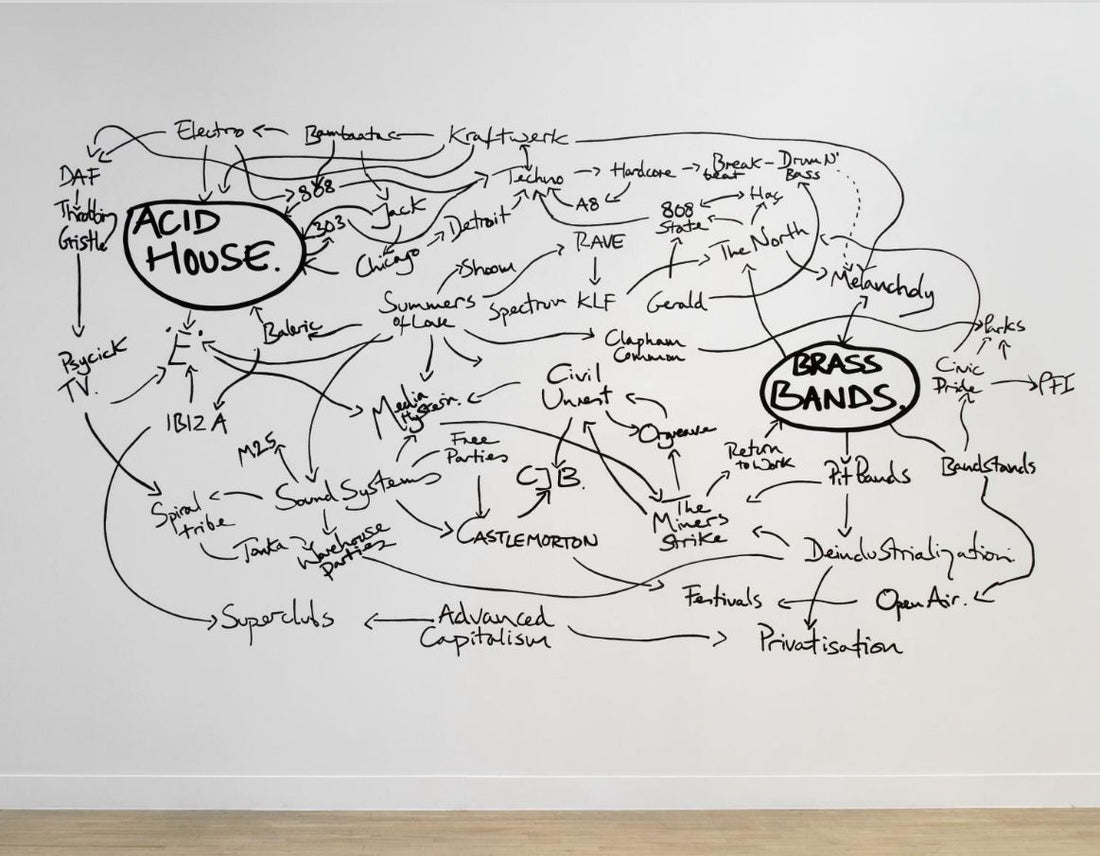 Electro
Bambaataa
Kraftwerk
DAF
808
Techno
Hardcore
Break-
beat
Drum N'
Bass
Throbbing
Gristle
ACID
HOUSE.
303
Jack
Detroit
A8
808
State
Hac
Chicago
RAVE
The North
Shoom
Summers
of Love
Spectrum
KLF
Gerald
Melancholy
'E'.
Clapham
Common
Parks
Psycick
TV.
IBIZA
Media
Civil
Unrest
BRASS
BANDS.
Civic
Pride
PFI
M25
Free
Parties
Orgreave
Return
to Work
Pit Bands
Bandstands
Spiral
tribe
Sound Systems
CJB.
The
Miners
Strike
Tonka
Warehouse
Parties
CASTLEMORTON
Deindustrialization.
Festivals
Open Air.
Superclubs
Advanced
Capitalism
Privatisation